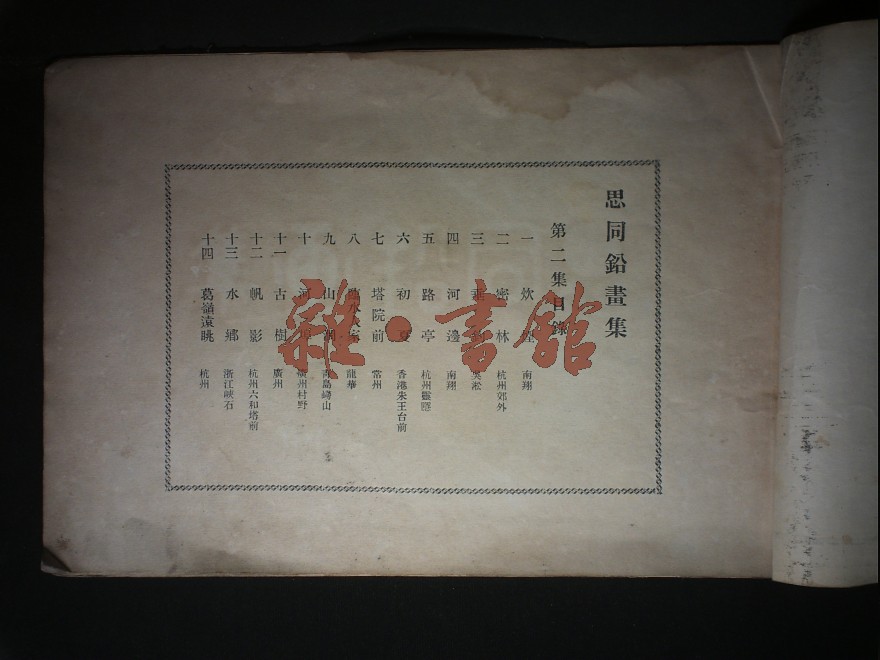 思同鉛畫集
第二集目錄
一 炊 南翔
二 密林 杭州郊外
三 吳淞
四 河邊 南翔
五 路亭 杭州靈隱
六 初夏 香港宋王台前
七 塔院前 常州
八 臨水人家 龍華
九 山 青島嶗山
十 河 廣州村野
十一 古樹 廣州
十二 帆影 杭州六和塔前
十三 水鄉 浙江硤石
十四 葛嶺遠眺 杭州
雜·書館